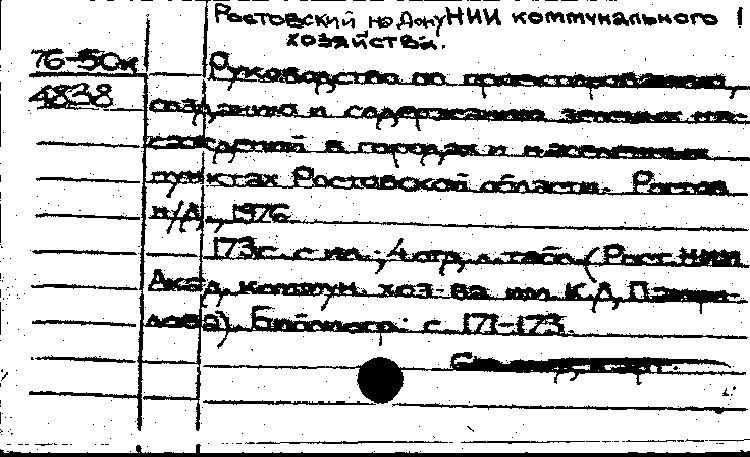 Ростовский на Дону НИИ коммунального
хозяйства.
76-50к
4838
Руководство по проектированию,
созданию и содержанию зеленых на-
саждений в городах и населенных
пунктах Ростовской области. Ростов
н/Д., 1976
173с. с ил.; 4 отд. л. табл. (Рост. НИИ
Акад. коммун. хоз-ва им К.Д. Памфи-
лова). Библиогр.: с. 171-173.